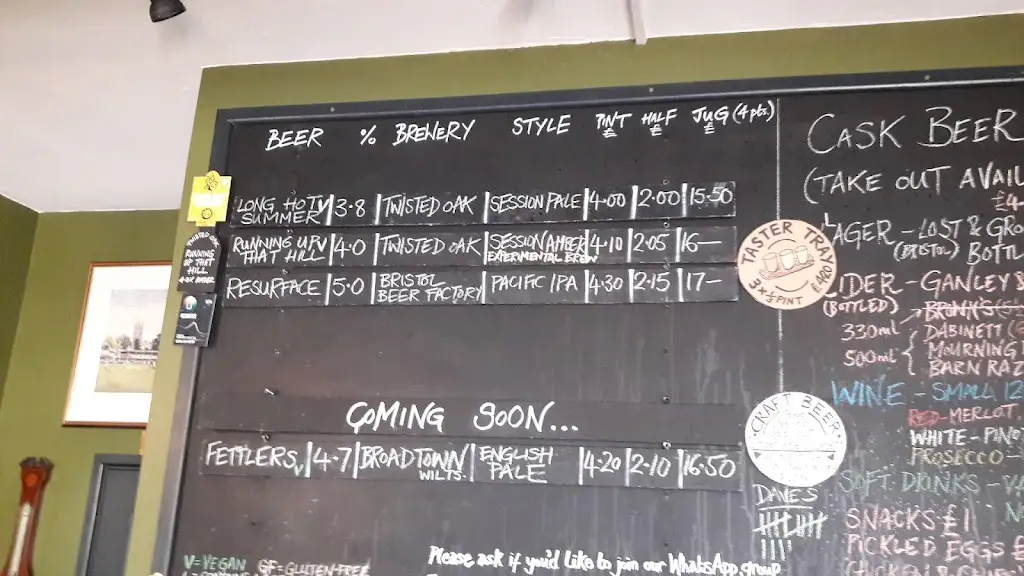 BEER % BREWERY STYLE PINT £ HALF £ JUG (4pts.) £
LONG HOT V SUMMER 3.8 TWISTED OAK SESSION PALE 4.00 2.00 15.50
RUNNING UP V THAT HILL 4.0 TWISTED OAK SESSION AMBER EXPERIMENTAL BREW 4.10 2.05 16—
RESURFACE 5.0 BRISTOL BEER FACTORY PACIFIC IPA 4.30 2.15 17—
COMING SOON...
FETTLERS V 4.7 BROADTOWN WILTS. ENGLISH PALE 4.20 2.10 16.50
V=VEGAN GF=GLUTEN-FREE
Please ask if you'd like to join our WhatsApp group
RUNNING UP THAT HILL
TASTER TRAY
3 x ⅓ PINT
CRAFT BEER
DAVES
CASK BEER
(TAKE OUT AVAIL
£4
LAGER - LOST & GRO
(BRISTOL) BOTTL
IDER - GANLEY &
(BOTTLED)
330ml
500ml { DABINETT
MOURNING
BARN RAZ
WINE - SMALL 12
RED - MERLOT
WHITE - PINO
PROSECCO -
SOFT DRINKS - VA
SNACKS £1
PICKLED EGGS £